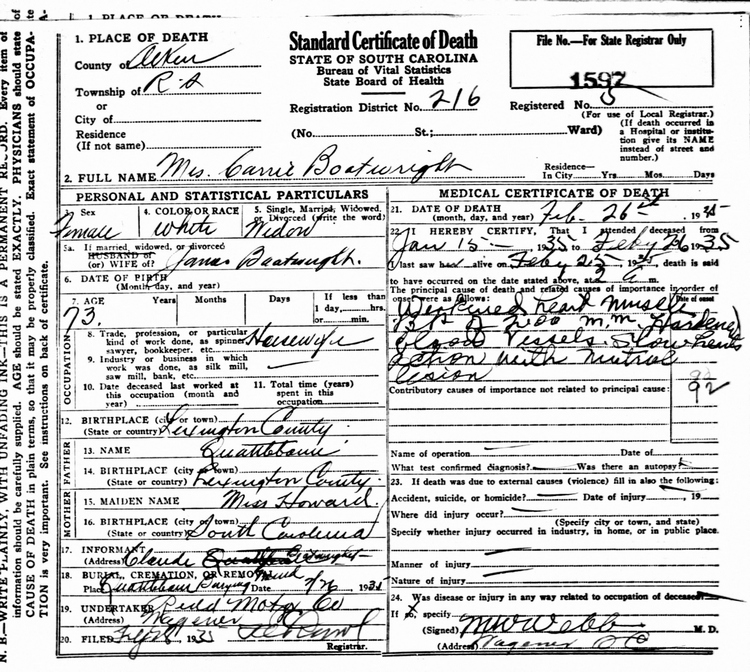 1. PLACE OF DEATH
County of Aiken
Township of
or
City of
Residence
(If not same)
Standard Certificate of Death
STATE OF SOUTH CAROLINA
Bureau of Vital Statistics
State Board of Health
Registration District No. 216
(No. St.; Ward)
File No.—For State Registrar Only
1597
Registered No.
(For use of Local Registrar.)
(If death occurred in
a Hospital or institu-
tion give its NAME
instead of street and
number.)
2. FULL NAME Mrs. Carrie Boatwright
Residence—
In City Yrs. Mos. Days
PERSONAL AND STATISTICAL PARTICULARS
Sex 4. COLOR OR RACE 5. Single, Married, Widowed,
or Divorced (write the word)
Female White Widow
5a. If married, widowed, or divorced
HUSBAND of
(or) WIFE of? James Boatwright.
6. DATE OF BIRTH
(Month, day, and year)
7. AGE Years Months Days If less than
1 day, hrs.
or min.
73
OCCUPATION
8. Trade, profession, or particular
kind of work done, as spinner,
sawyer, bookkeeper, etc. Housewife
9. Industry or business in which
work was done, as silk mill,
saw mill, bank, etc.
10. Date deceased last worked at
this occupation (month and
year)
11. Total time (years)
spent in this
occupation
12. BIRTHPLACE (city or town)
(State or country) Lexington County
FATHER
13. NAME Quattlebaum
14. BIRTHPLACE (city or town)
(State or country) Lexington County.
MOTHER
15. MAIDEN NAME Miss Howard.
16. BIRTHPLACE (city or town)
(State or country) South Carolina
17. INFORMANT Claude
(Address)
18. BURIAL, CREMATION, OR REMOVAL
Place Quattlebaum Date 1935
19. UNDERTAKER Motor Co
(Address) Wagener
20. FILED 1935
Registrar.
MEDICAL CERTIFICATE OF DEATH
21. DATE OF DEATH
(month, day, and year) Feb. 26th, 1935
22. I HEREBY CERTIFY, That I attended deceased from
Jan 15 — 1935 to Feby 26 1935
I last saw h alive on Feby 25, 1935, death is said
to have occurred on the date stated above, at m.
The principal cause of death and related causes of importance in order of
onset were as follows: Date of onset
Weakened heart muscle
M.M. Hardened
blood vessels. Slow heart
action with mitral
lesion
92
Contributory causes of importance not related to principal cause:
92
Name of operation Date of
What test confirmed diagnosis? Was there an autopsy?
23. If death was due to external causes (violence) fill in also the following:
Accident, suicide, or homicide? Date of injury , 19
Where did injury occur?
(Specify city or town, county, and state)
Specify whether injury occurred in industry, in home, or in public place.
Manner of injury
Nature of injury
24. Was disease or injury in any way related to occupation of deceased?
If so, specify
(Signed) M W Webb M. D.
(Address) Wagener S C
N. B.—WRITE PLAINLY, WITH UNFADING INK—THIS IS A PERMANENT RECORD. Every item of
information should be carefully supplied. AGE should be stated EXACTLY. PHYSICIANS should state
CAUSE OF DEATH in plain terms, so that it may be properly classified. Exact statement of OCCUPA-
TION is very important. See instructions on back of certificate.